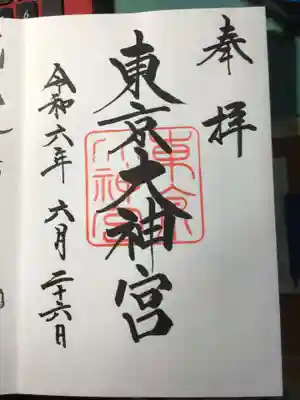 奉拝
東京大神宮
東京大神宮
令和六年 六月二十六日